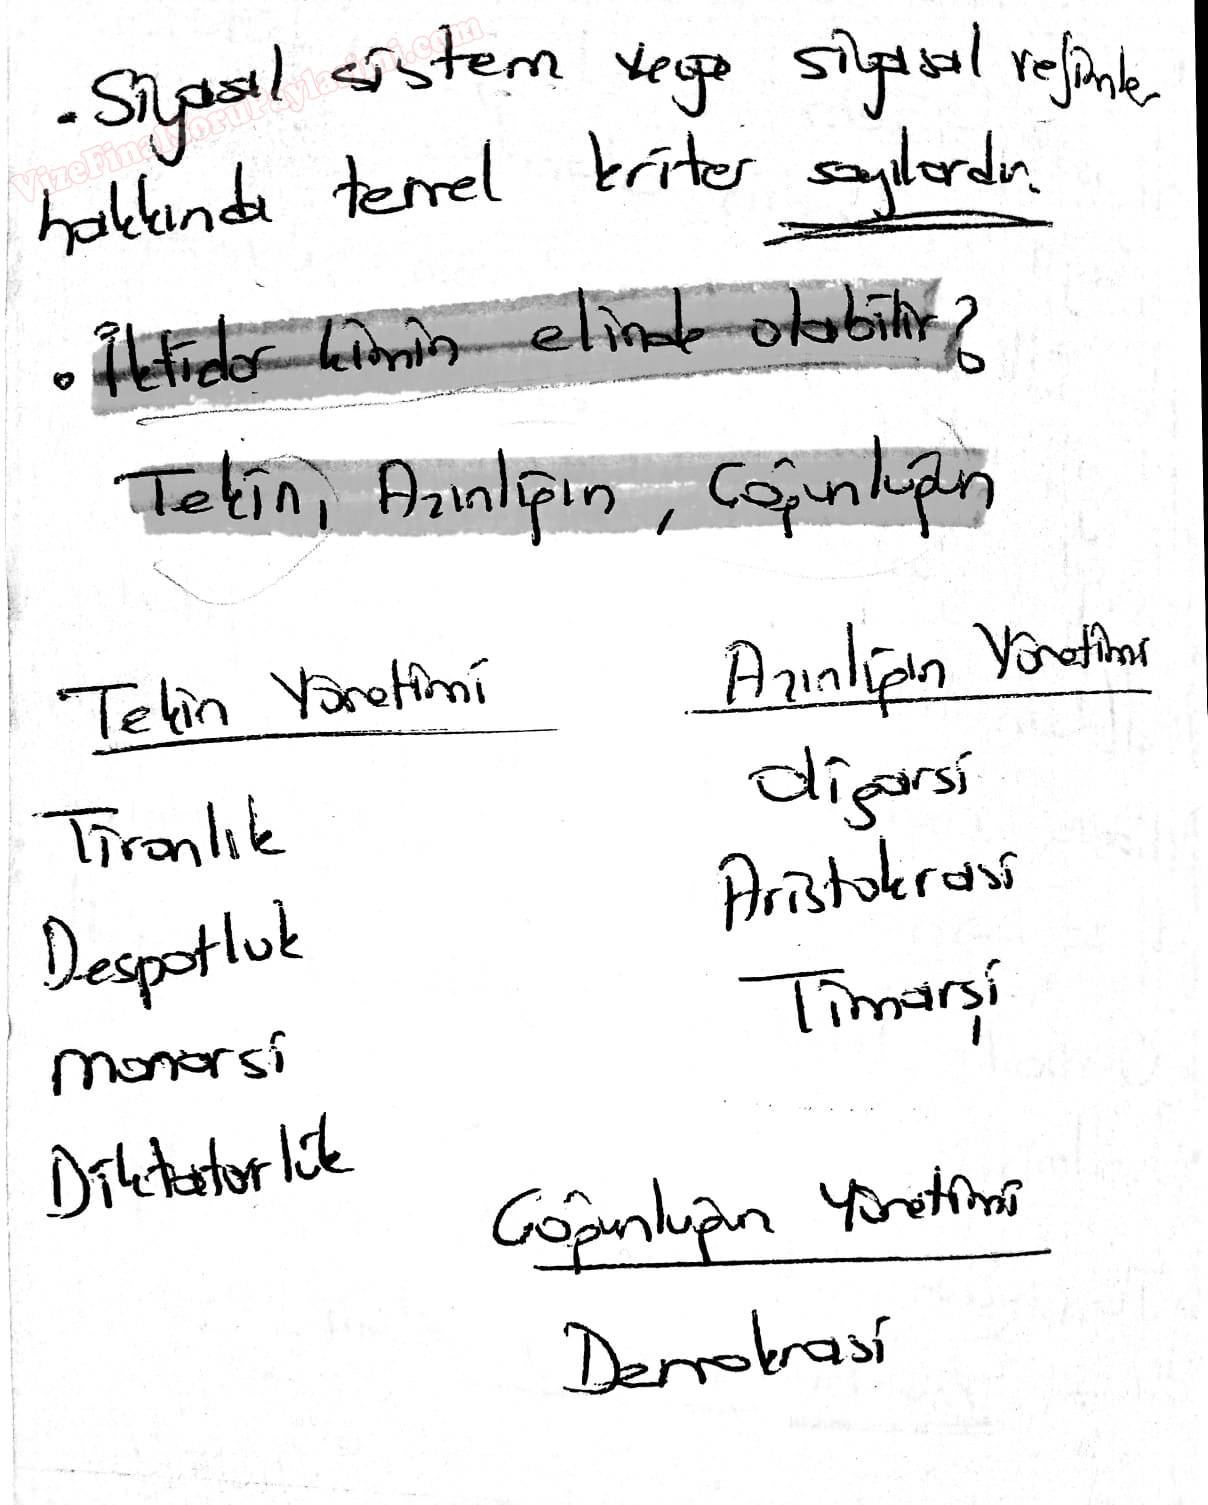 VizeFinalSoruPaylasimi.com
. Siyasal sistem veya siyasal rejimler
hakkında temel kriter sayılardır.
. İktidar kimin elinde olabilir?
Tekin, Azınlığın, Çoğunluğun
Tekin Yönetimi
Tiranlık
Despotluk
monarşi
Diktatörlük
Azınlığın Yönetimi
Oligarşi
Aristokrasi
Timarşi
Çoğunluğun Yönetimi
Demokrasi